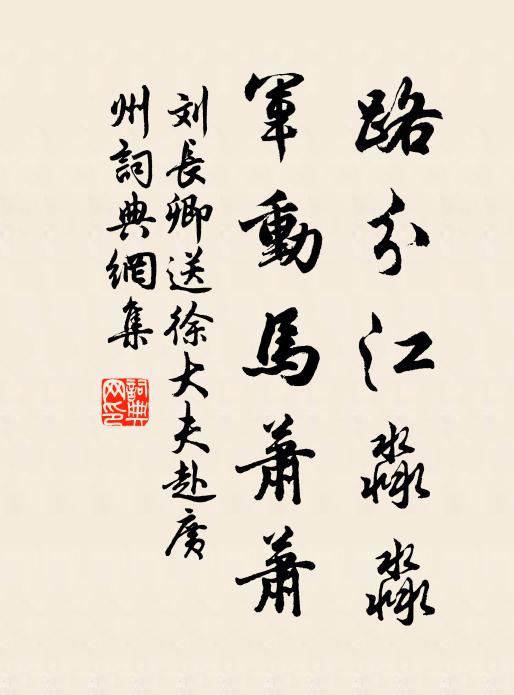 路分江淼淼
軍動馬蕭蕭
刘長卿送徐大夫赴廣
州詞典網集
詞典
网印